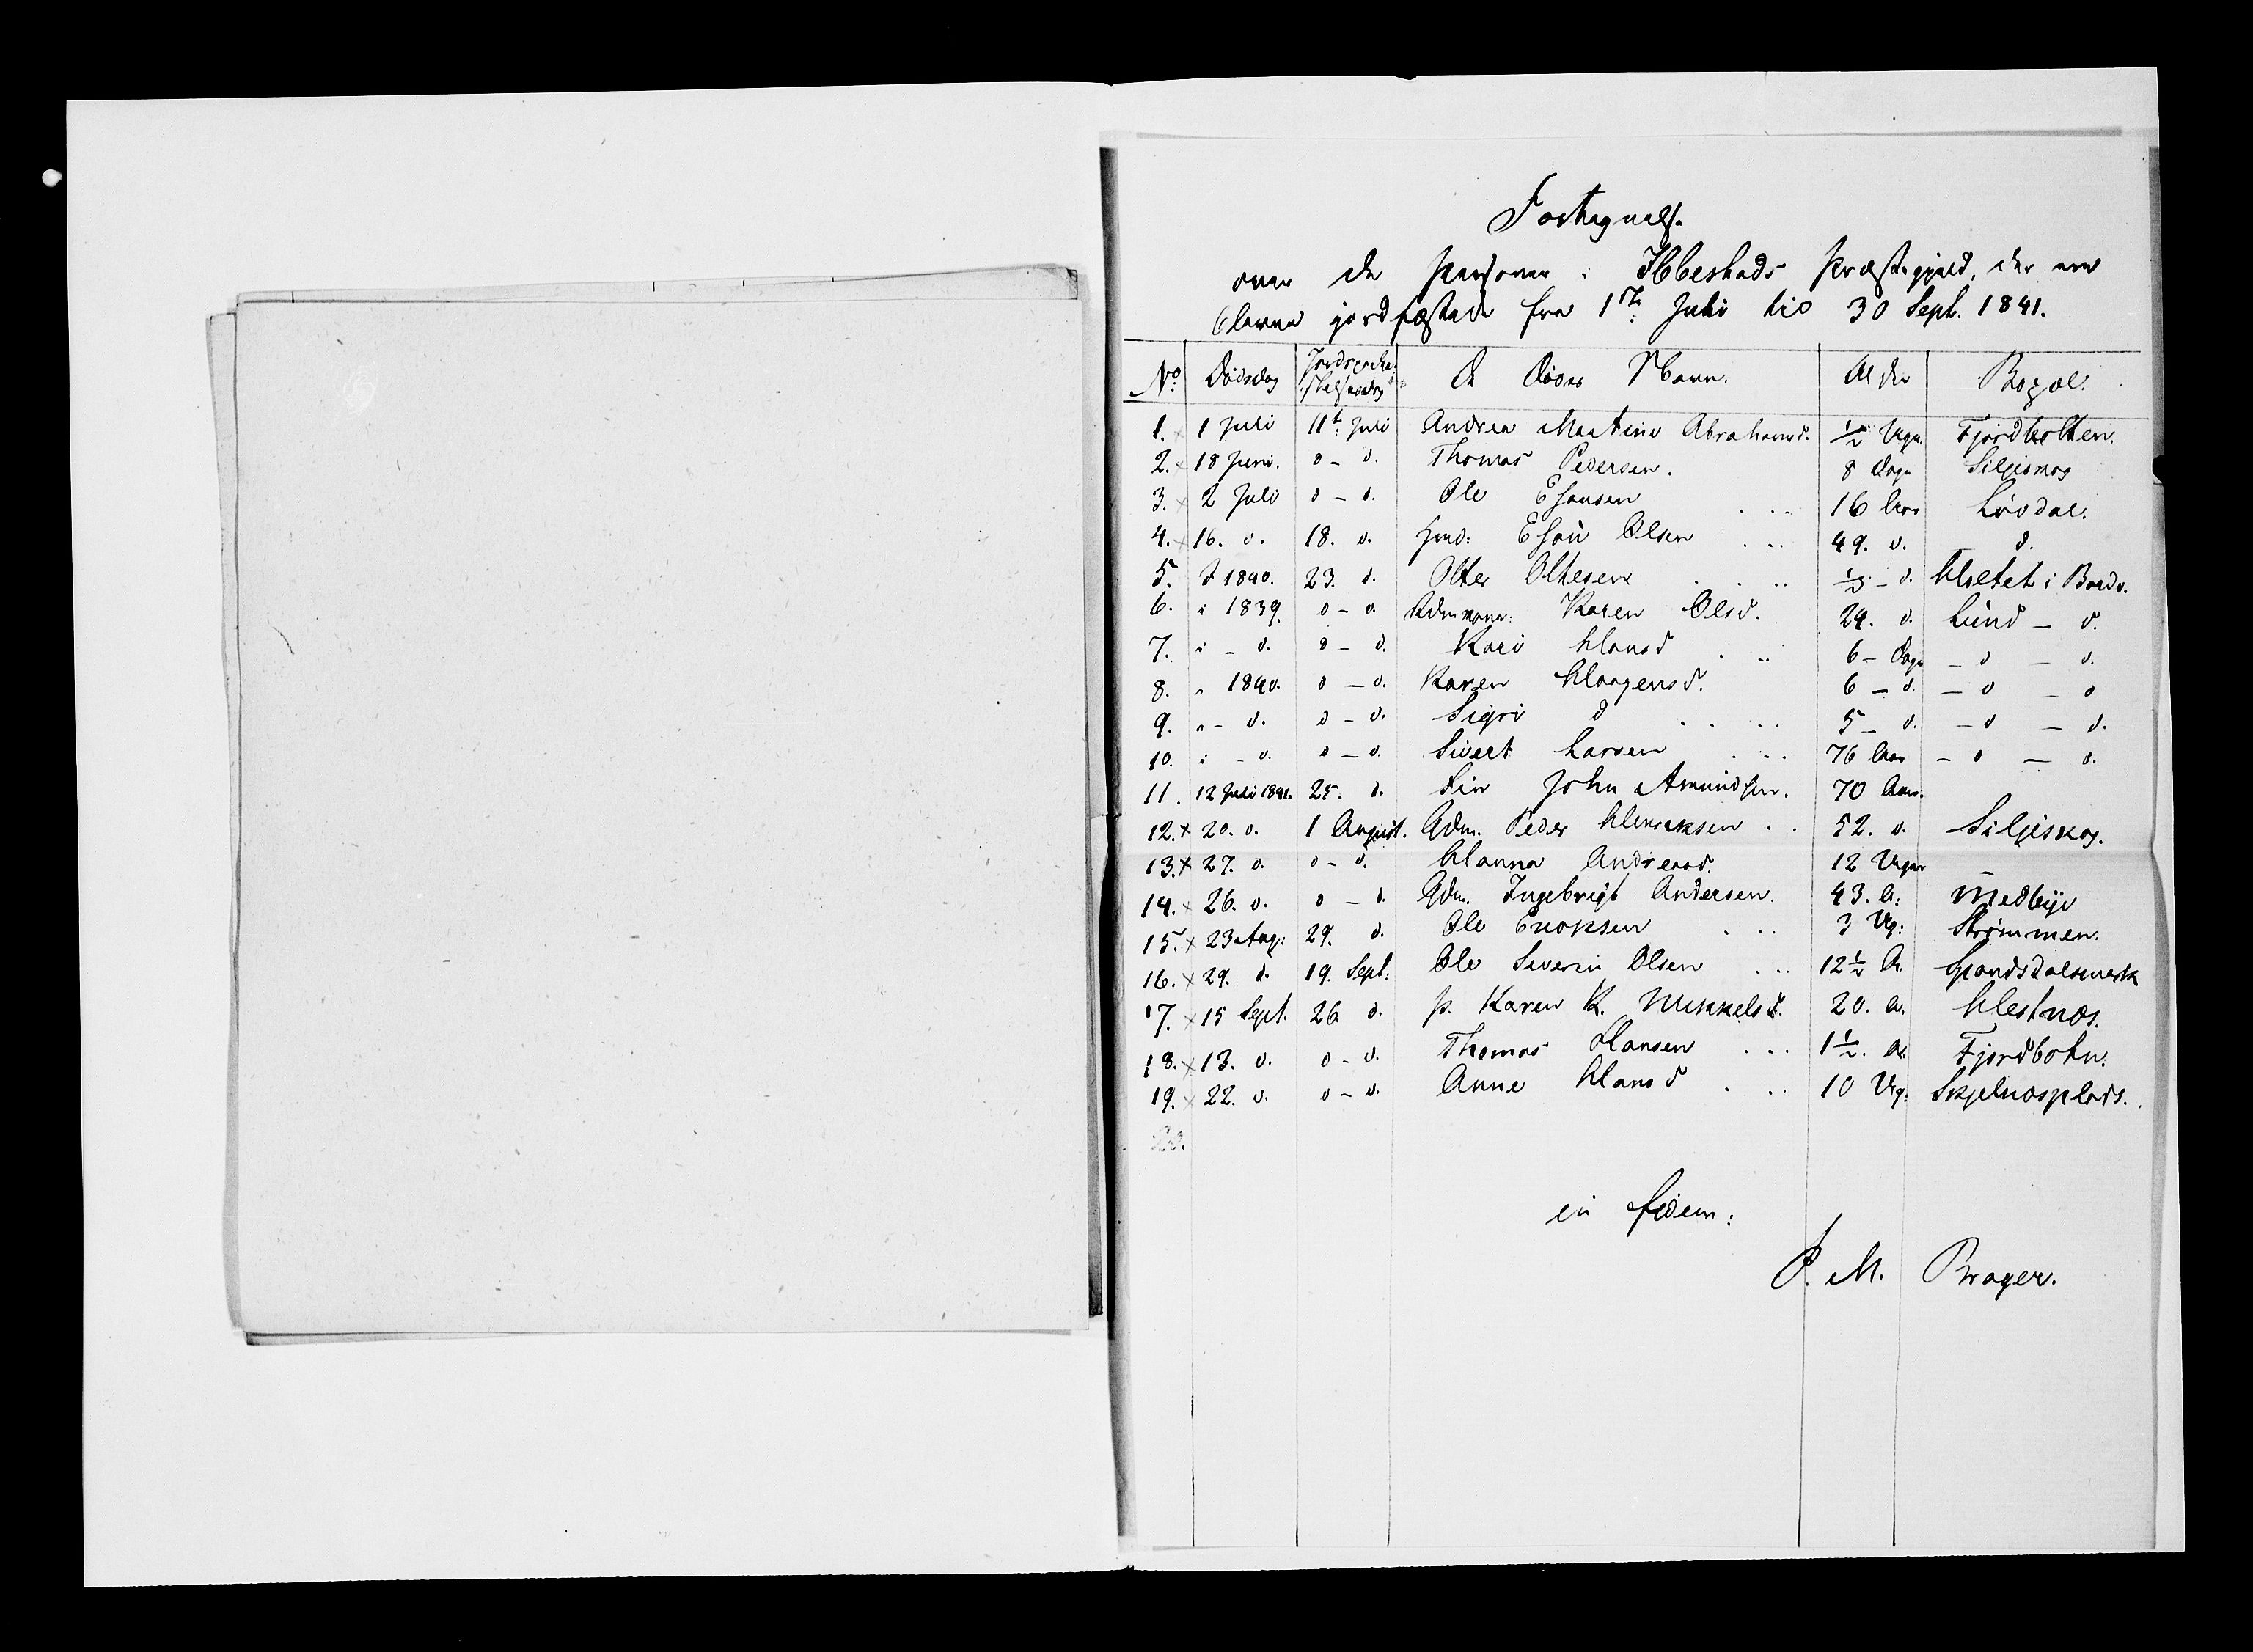 Fortegnelse
over de Personer i Ibbestads Præstegjæld, der ere
blevne jordfæstede fra 1ste Juli til 30 Sept. 1841.
No Dødsdag Jordspaaka- stelsesdag De Dødes Navn. Alder Bopæl.
1. × 1 Juli 11te Juli Andrea Martine Abrahamsd. 1/2 Uge. Fjordbotten.
2. × 18 Juni. d - d. Thomas Pedersen. 8 Dage Siljeskog
3. × 2 Juli d - d. Ole Esausen ... 16 Aar Løvdal.
4. × 16. d. 18. d. Hmd: Esau Olsen ... 49. d. d.
5. I 1840. 23. d. Olter Oltesen ... 1/3 - d. Sletet i Bardo.
6. i 1839. d - d. Kdmkone: Karen Olsd. 29. d. Lund - d.
7. i - d. d - d. Kari Hansd ... 6 - Dage - d - d.
8. " 1840. d - d. Karen Haagensd. 6 - d. - d - d
9. " - d. d - d. Sigri d .... 5 - d. - d - d.
10. i - d. d - d. Sivert Larsen ... 76 Aar - d - d.
11. 12 Juli 1841. 25. d. Fin John Amundsen. 70 Aar.
12. × 20. d. 1 August. Gdm. Peder Henriksen .. 52. d. Siljeskog.
13. × 27. d. d - d. Hanna Andreasd. 12 Uger
14. × 26. d. d - d. Gdm. Ingebrigt Andersen. 43. A: Medbye
15. × 23 Aug: 29. d. Ole Enoksen ... 3 Ug: Strømmen.
16. × 29. d. 19. Sept: Ole Severin Olsen ... 12 1/2 A. Spandsdalsmark
17. × 15 Sept. 26. d. p. Karen K. Mikkelsd. 20. A. Hestnæs.
18. × 13. d. d - d. Thomas Hansen ... 1 1/2. A. Fjordbotn.
19. × 22. d. d - d. Anne Hansd ... 10 Ug: Skjelnæsplads.
20.
in fidem:
P. M. Brager.